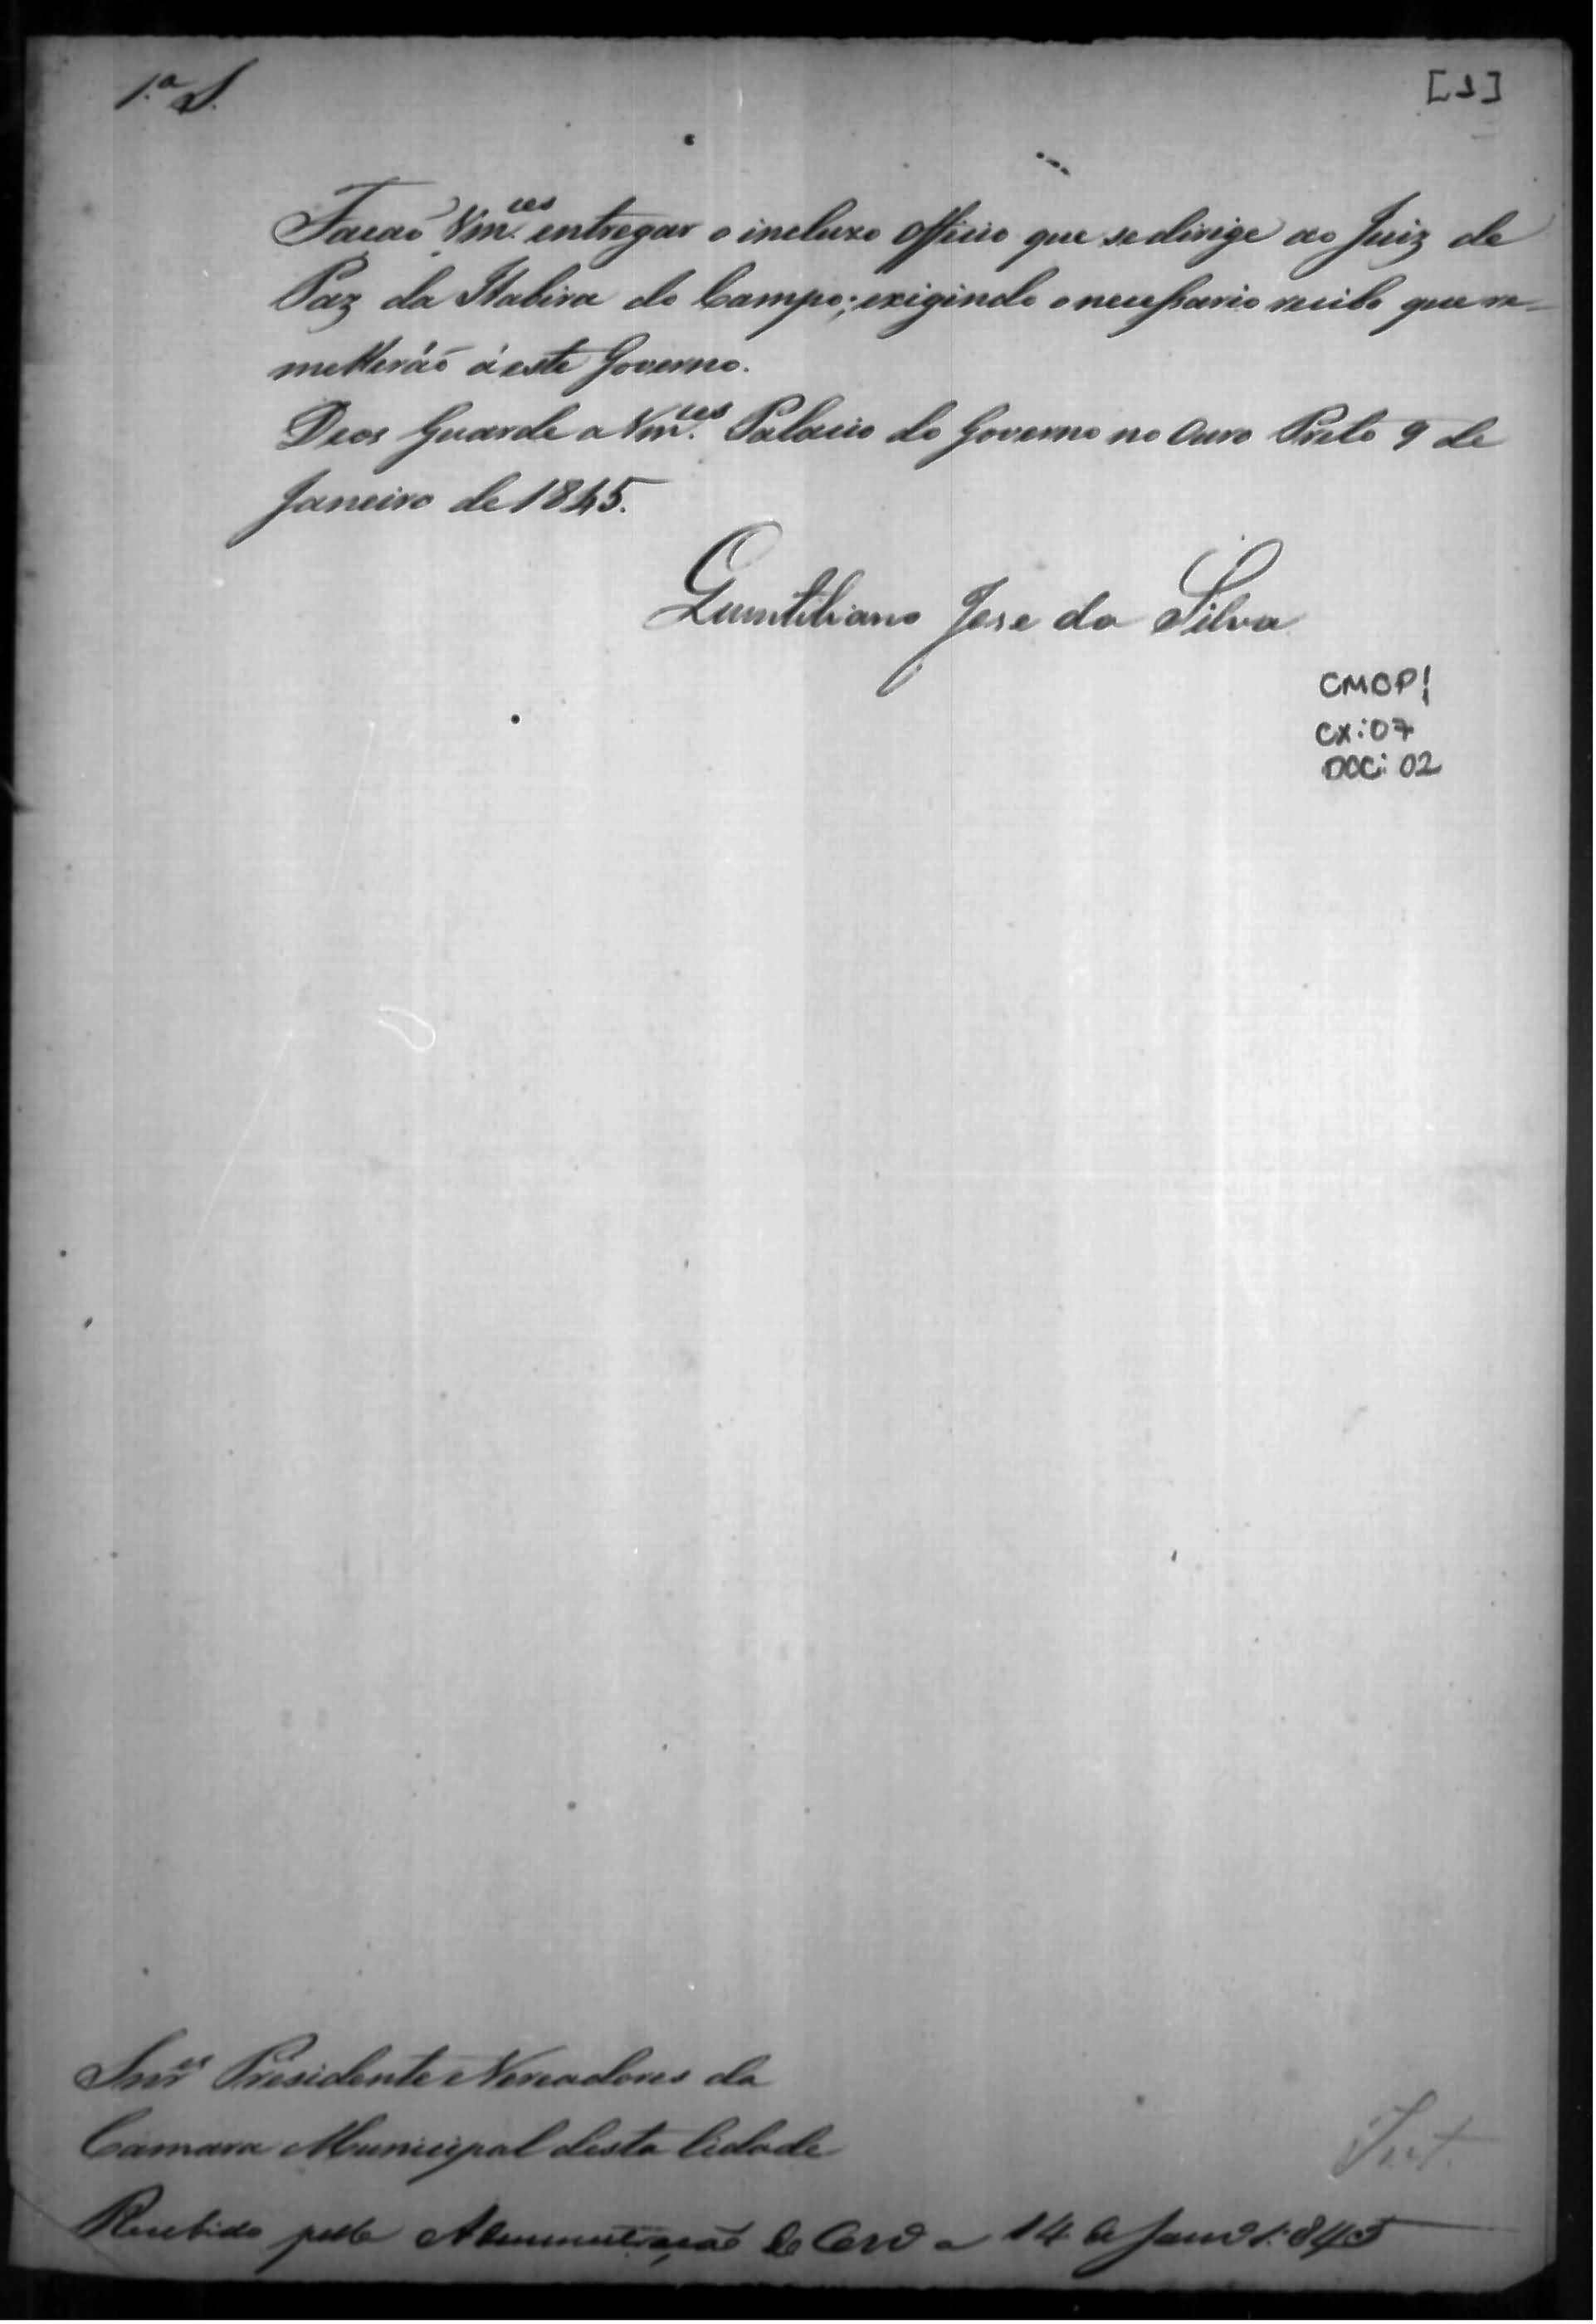 1.ª S.
[1]
Facaõ Vm.ces entregar o incluzo Officio que se dirige ao Juiz de
Paz da Itabira do Campo; exigindo o necessario recibo que re-
metteráõ á este Governo.
Deos Guarde a Vm.ces Palacio do Governo no Ouro Preto 9 de
Janeiro de 1845.
Quintiliano Jose da Silva
CMOP
CX: 07
DOC: 02
Snr.es Presidente e Vereadores da
Camara Municipal desta Cidade
Int.
Recebido pella Administração do Corr.o a 14 de Janr.o 1.845